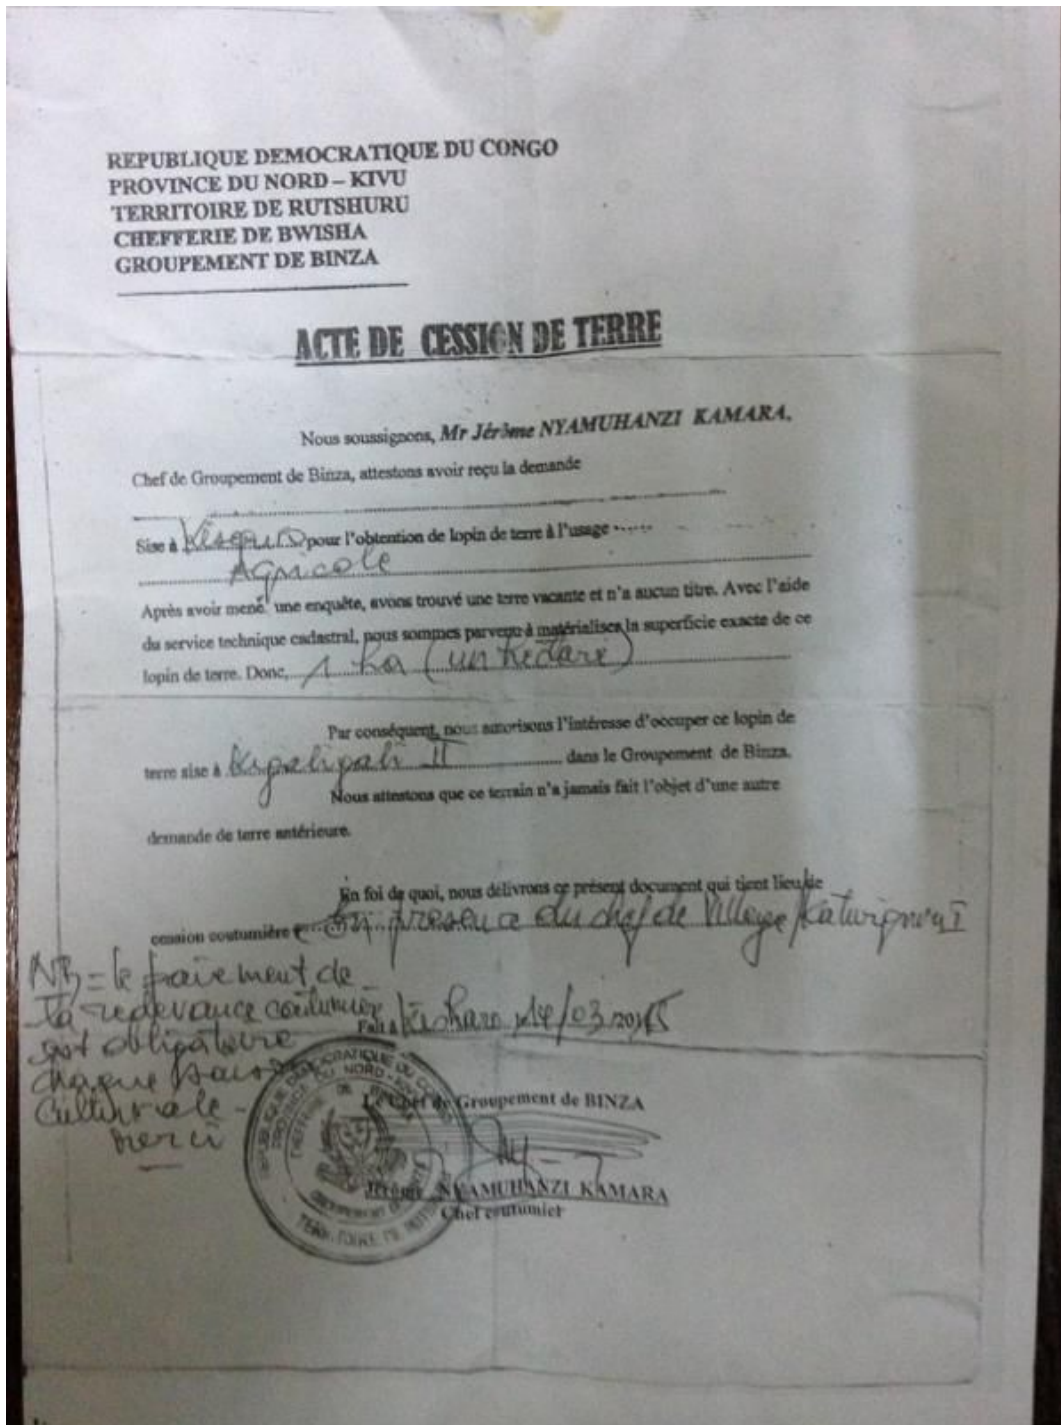 REPUBLIQUE DEMOCRATIQUE DU CONGO
PROVINCE DU NORD – KIVU
TERRITOIRE DE RUTSHURU
CHEFFERIE DE BWISHA
GROUPEMENT DE BINZA
ACTE DE CESSION DE TERRE
Nous soussignons, Mr Jérôme NYAMUHANZI KAMARA,
Chef de Groupement de Binza, attestons avoir reçu la demande
Sise à pour l'obtention de lopin de terre à l'usage
Agricole
Après avoir mené une enquête, avons trouvé une terre vacante et n'a aucun titre. Avec l'aide
du service technique cadastral, nous sommes parvenu à matérialiser la superficie exacte de ce
lopin de terre. Donc, 1 ha (un hectare)
Par conséquent, nous autorisons l'intéresse d'occuper ce lopin de
terre sise à Kigaligali II dans le Groupement de Binza.
Nous attestons que ce terrain n'a jamais fait l'objet d'une autre
demande de terre antérieure.
En foi de quoi, nous délivrons ce présent document qui tient lieu de
cession coutumière En presence du chef de Village
NB = le paiement de
la redevance coutumière
est obligatoire
chaque
Culturale -
Merci
Fait à Kisharo 14/03/2015
REPUBLIQUE DEMOCRATIQUE DU CONGO
PROVINCE DU NORD - KIVU
CHEFFERIE DE
TERRITOIRE DE
Le Chef de Groupement de BINZA
Jérôme NYAMUHANZI KAMARA
Chef coutumier